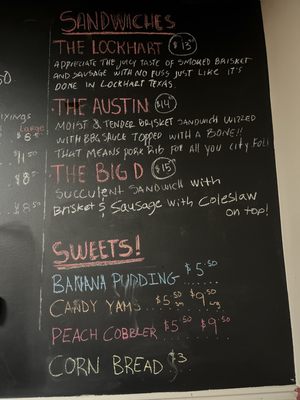 SANDWICHES
THE LOCKHART $13
APPRECIATE THE JUICY TASTE OF SMOKED BRISKET
AND SAUSAGE WITH NO FUSS JUST LIKE IT'S
DONE IN LOCKHART TEXAS
THE AUSTIN $14
MOIST & TENDER BRISKET SANDWICH WIZZED
WITH BBQ SAUCE TOPPED WITH A BONE!!
THAT MEANS PORK RIB FOR ALL YOU CITY FOL
THE BIG D $15
SUCCULENT SANDWICH WITH
BRISKET & SAUSAGE WITH COLESLAW
ON TOP!
SWEETS!
BANANA PUDDING $5.50
CANDY YAMS $5.50 $9.50
PEACH COBBLER $5.50 $9.50
CORN BREAD $3
XINGS
Large